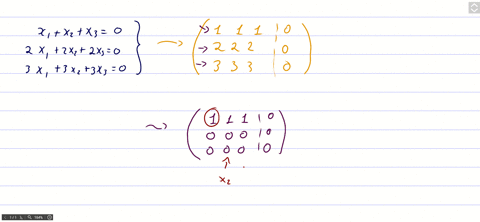 x₁ + x₂ + x₃ = 0
2x₁ + 2x₂ + 2x₃ = 0
3x₁ + 3x₂ + 3x₃ = 0
1 1 1 | 0
2 2 2 | 0
3 3 3 | 0
1 1 1 | 0
0 0 0 | 0
0 0 0 | 0
x₂